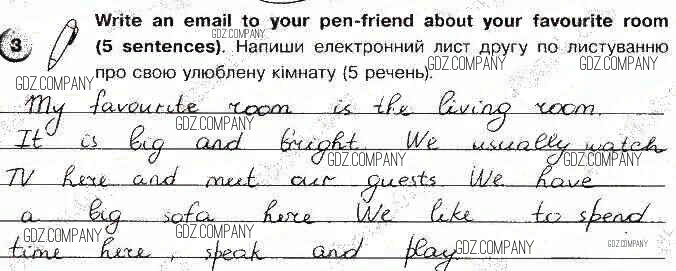 3
Write an email to your pen-friend about your favourite room
(5 sentences). Напиши електронний лист другу по листуванню
про свою улюблену кімнату (5 речень).
My favourite room is the living room.
It is big and bright. We usually watch
TV here and meet our guests We have
a big sofa here. We like to spend
time here, speak and play
GDZ.COMPANY
GDZ.COMPANY
GDZ.COMPANY
GDZ.COMPANY
GDZ.COMPANY
GDZ.COMPANY
GDZ.COMPANY
GDZ.COMPANY
GDZ.COMPANY
GDZ.COMPANY
GDZ.COMPANY
GDZ.COMPANY